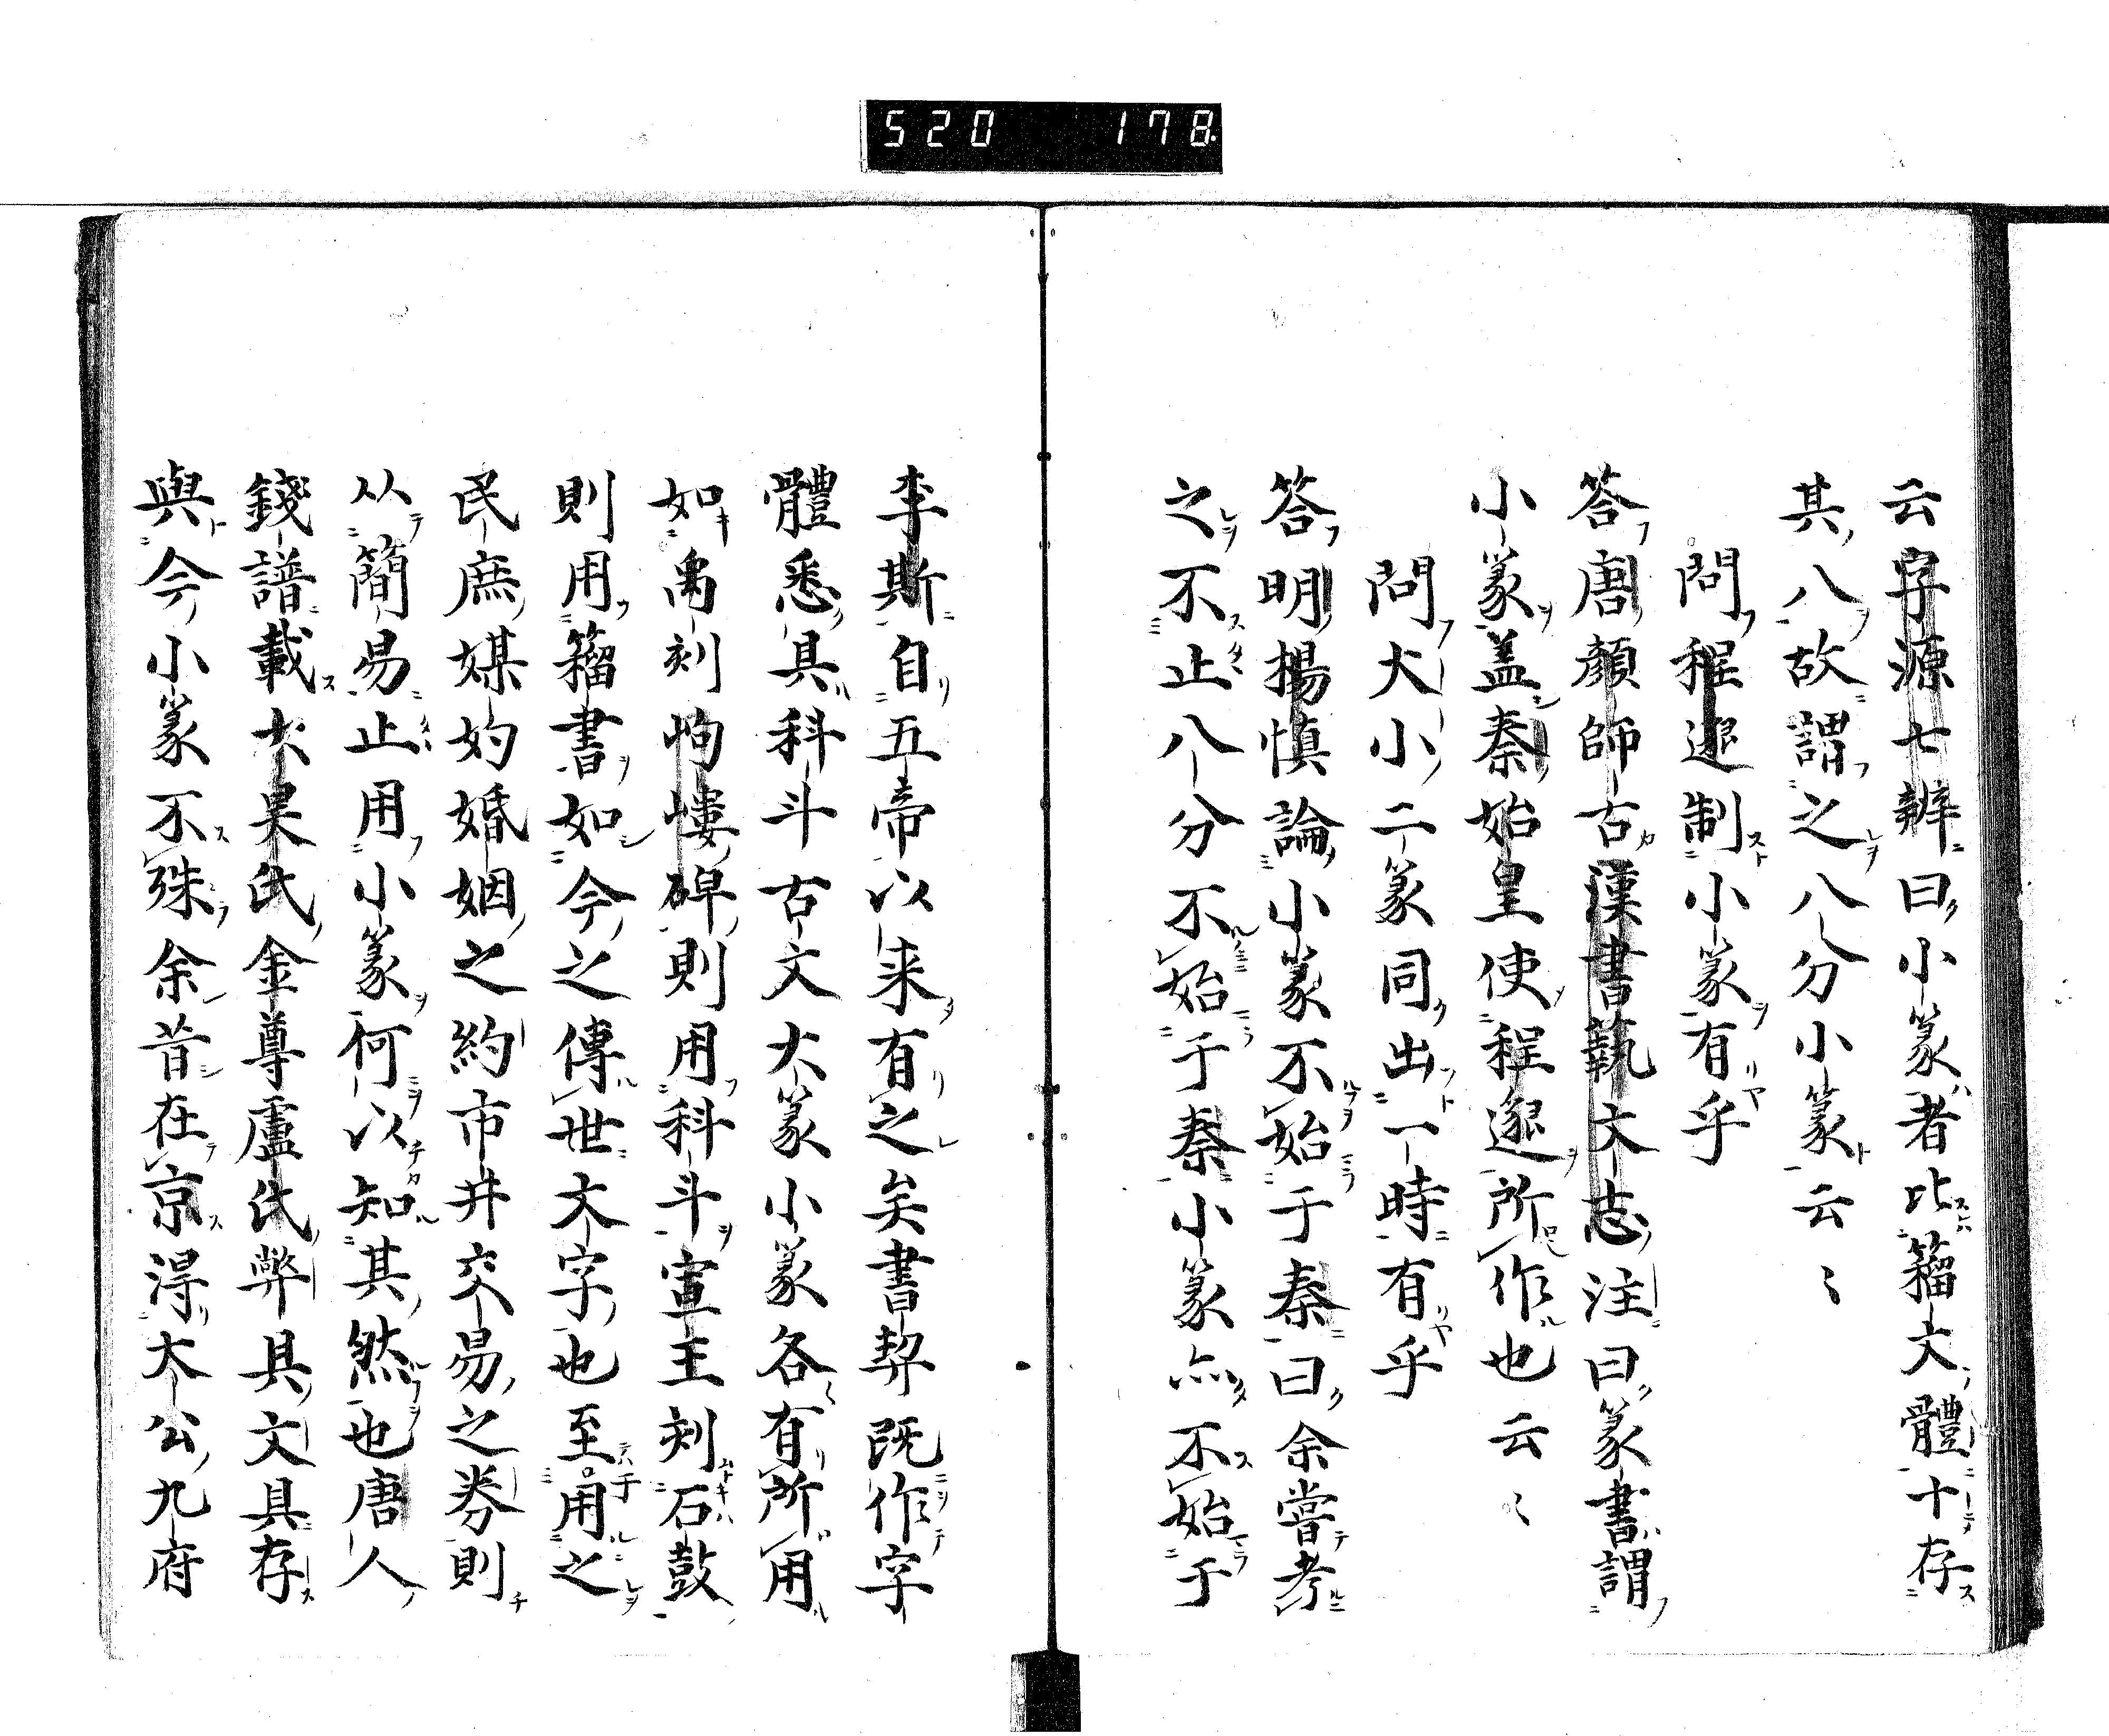 520 178
云字源七辨曰小篆者比籀文體十存
其八故謂之八分小篆云〻
問程邈制小篆有乎
答唐顏師古漢書藝文志注曰篆書謂
小篆盖秦始皇使程邈所作也云〻
問大小二篆同出一時有乎
答明楊慎論小篆不始于秦曰余嘗考
之不止八分不始于秦小篆亦不始于
李斯自五帝以来有之矣書契既作字
體悉具科斗古文大篆小篆各有所用
如禹刻岣嶁碑則用科斗宣王刻石鼓
則用籀書如今之傳世文字也至用之
民庶媒妁婚姻之約市井交易之券則
从簡易止用小篆何以知其然也唐人
錢譜載太昊氏金尊盧氏幣具文具存
與今小篆不殊余昔在京得太公九府